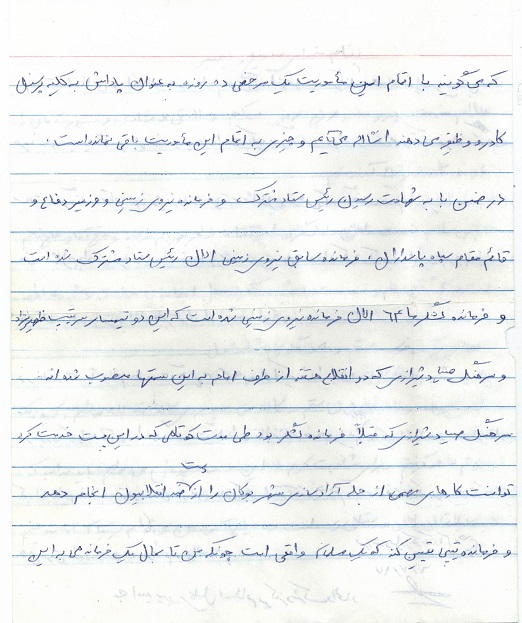 که می‌گویند با اتمام این مأموریت یک مرخصی ده روزه به عنوان پاداش به کلیه پرسنل
کادر و وظیفه می‌دهند انشاالله می‌آییم و چیزی به اتمام این مأموریت باقی نمانده است.
در ضمن با به شهادت رسیدن رئیس ستاد مشترک و فرمانده نیروی زمینی و وزیر دفاع و
قائم مقام سپاه پاسداران، فرمانده سابق نیروی زمینی الان رئیس ستاد مشترک شده است
و فرمانده لشگر ما ۶۴ الان فرمانده نیروی زمینی شده است که این دو تیمسار سرتیپ ظهیرنژاد
و سرهنگ صیاد شیرازی که در انقلاب هستند از طرف امام به این سمتها منصوب شده‌اند
سرهنگ صیاد شیرازی که قبلاً فرمانده لشگر بود طی مدت کوتاهی که در این پست خدمت کرد
توانست کارهای مهمی از جمله آزادسازی شهر بوکان را از دست ضد انقلابیون انجام دهد
و فرمانده تیپی تعیین کند که یک مسلمان واقعی است چونکه من تا بحال یک فرمانده‌ی به این